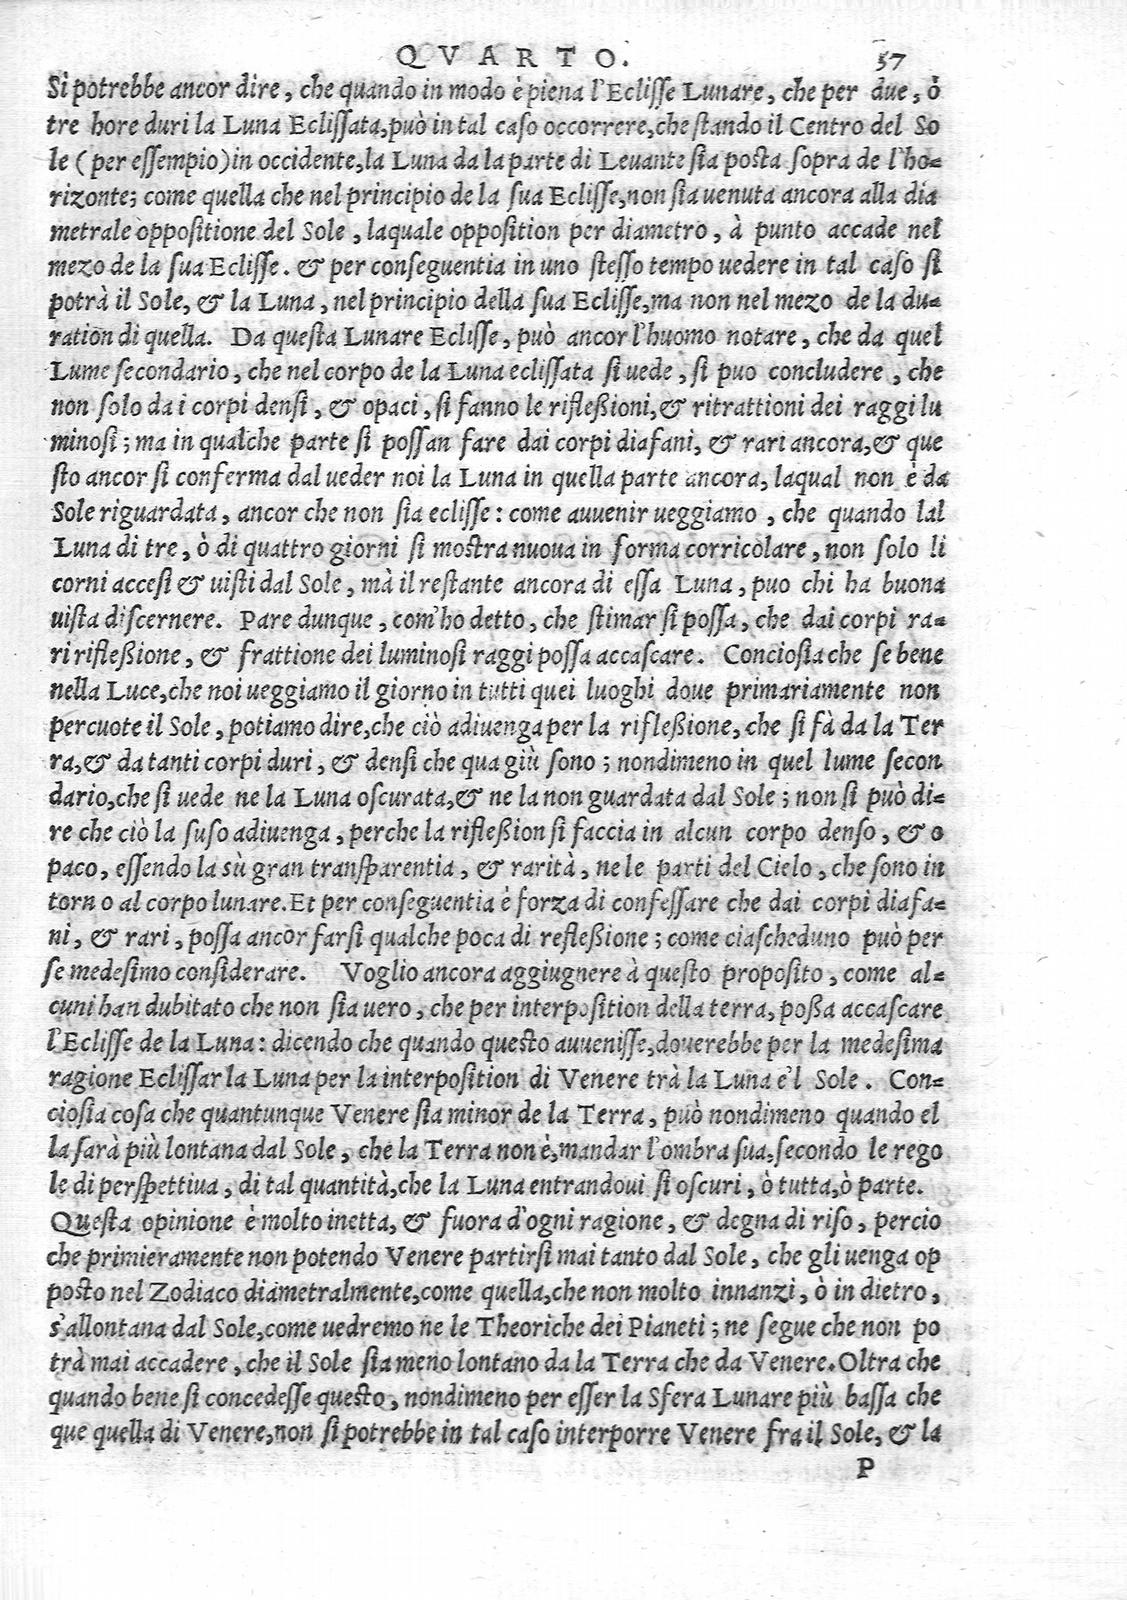 QVARTO. 57
Si potrebbe ancor dire, che quando in modo è piena l'Eclisse Lunare, che per due, ò
tre hore duri la Luna Eclissata, può in tal caso occorrere, che stando il Centro del So
le (per essempio) in occidente, la Luna da la parte di Leuante sia posta sopra de l'ho=
rizonte; come quella che nel principio de la sua Eclisse, non sia uenuta ancora alla dia
metrale oppositione del Sole, laquale opposition per diametro, à punto accade nel
mezo de la sua Eclisse. & per conseguentia in uno stesso tempo uedere in tal caso si
potrà il Sole, & la Luna, nel principio della sua Eclisse, ma non nel mezo de la du=
ration di quella. Da questa Lunare Eclisse, può ancor l'huomo notare, che da quel
Lume secondario, che nel corpo de la Luna eclissata si uede, si puo concludere, che
non solo da i corpi densi, & opaci, si fanno le riflessioni, & ritrattioni dei raggi lu
minosi; ma in qualche parte si possan fare dai corpi diafani, & rari ancora, & que
sto ancor si conferma dal ueder noi la Luna in quella parte ancora, laqual non è da
Sole riguardata, ancor che non sia eclisse: come auuenir ueggiamo, che quando lal
Luna di tre, ò di quattro giorni si mostra nuoua in forma corricolare, non solo li
corni accesi & uisti dal Sole, mà il restante ancora di essa Luna, puo chi ha buona
uista discernere. Pare dunque, com'ho detto, che stimar si possa, che dai corpi ra=
ri riflessione, & frattione dei luminosi raggi possa accascare. Conciosia che se bene
nella Luce, che noi ueggiamo il giorno in tutti quei luoghi doue primariamente non
percuote il Sole, potiamo dire, che ciò adiuenga per la riflessione, che si fà da la Ter
ra, & da tanti corpi duri, & densi che qua giù sono; nondimeno in quel lume secon
dario, che si uede ne la Luna oscurata, & ne la non guardata dal Sole; non si può di=
re che ciò la suso adiuenga, perche la riflession si faccia in alcun corpo denso, & o
paco, essendo la sù gran transparentia, & rarità, ne le parti del Cielo, che sono in
torno al corpo lunare. Et per conseguentia è forza di confessare che dai corpi diafa=
ni, & rari, possa ancor farsi qualche poca di reflessione; come ciascheduno può per
se medesimo considerare. Voglio ancora aggiugnere à questo proposito, come al=
cuni han dubitato che non sia uero, che per interposition della terra, possa accascare
l'Eclisse de la Luna: dicendo che quando questo auuenisse, douerebbe per la medesima
ragione Eclissar la Luna per la interposition di Venere trà la Luna e'l Sole. Con=
ciosia cosa che quantunque Venere sia minor de la Terra, può nondimeno quando el
la sarà più lontana dal Sole, che la Terra non è, mandar l'ombra sua, secondo le rego
le di perspettiua, di tal quantità, che la Luna entrandoui si oscuri, ò tutta, ò parte.
Questa opinione è molto inetta, & fuora d'ogni ragione, & degna di riso, percio
che primieramente non potendo Venere partirsi mai tanto dal Sole, che gli uenga op
posto nel Zodiaco diametralmente, come quella, che non molto innanzi, ò in dietro,
s'allontana dal Sole, come uedremo ne le Theoriche dei Pianeti; ne segue che non po
trà mai accadere, che il Sole sia meno lontano da la Terra che da Venere. Oltra che
quando bene si concedesse questo, nondimeno per esser la Sfera Lunare più bassa che
que quella di Venere, non si potrebbe in tal caso interporre Venere fra il Sole, & la
P